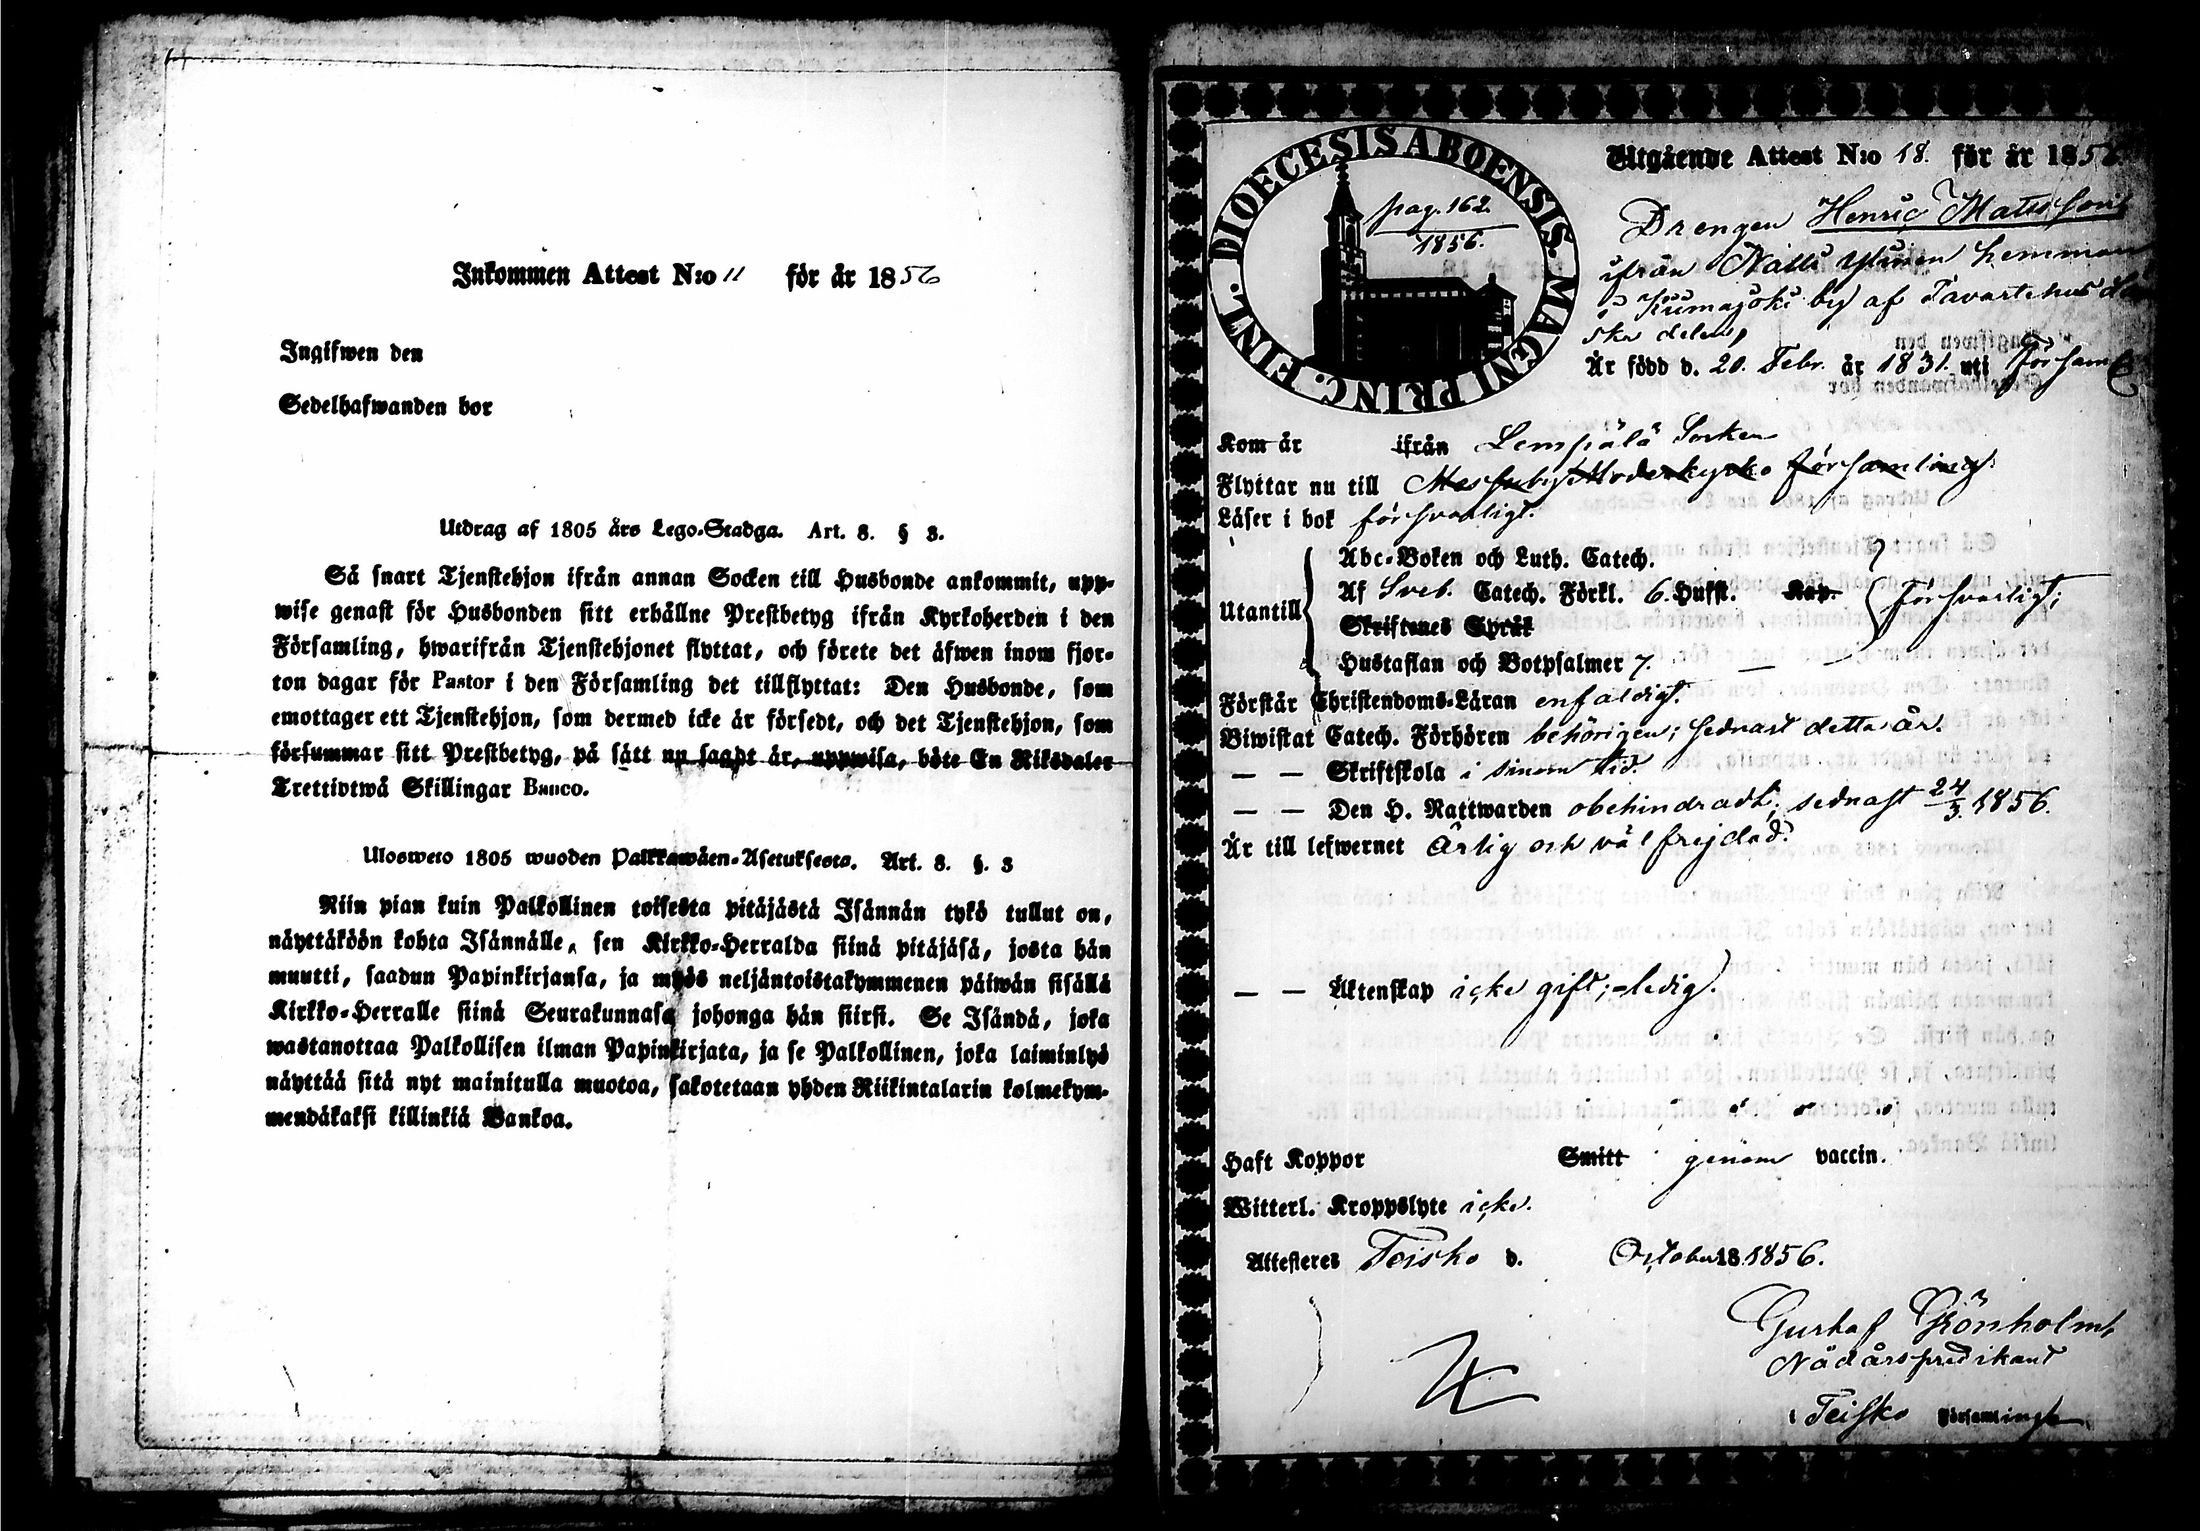 Inkommen Attest N:o 11 för år 1856
Ingifwen den
Sedelhafwanden bor
Utdrag af 1805 års Lego-Stadga. Art. 8. § 3.
Så snart Tjenstehjon ifrån annan Socken till Husbonde ankommit, upp-
wise genast för Husbonden sitt erhållne Prestbetyg ifrån Kyrkoherden i den
Församling, hwarifrån Tjenstehjonet flyttat, och förete det äfwen inom fjor-
ton dagar för Pastor i den Församling det tillflyttat: Den Husbonde, som
emottager ett Tjenstehjon, som dermed icke är försedt, och det Tjenstehjon, som
försummar sitt Prestbetyg, på sätt nu sagdt är, uppwisa, böte En Riksdaler
Trettiotwå Skillingar Banco.
Ulosweto 1805 wuoden Palkkawäen-Asetuksesta. Art. 8. §. 3
Niin pian kuin Palkollinen toisesta pitäjästä Isännän tykö tullut on,
näyttäköön kohta Isännälle, sen Kirkko-Herralda siinä pitäjäsä, josta hän
muutti, saadun Papinkirjansa, ja myös neljäntoistakymmenen päiwän sisällä
Kirkko-Herralle siinä Seurakunnasa johonga hän siirsi. Se Isändä, joka
wastanottaa Palkollisen ilman Papinkirjata, ja se Palkollinen, joka laiminlyö
näyttää sitä nyt mainitulla muotoa, sakotetaan yhden Riikintalarin kolmekym-
mendäkaksi killinkiä Bankoa.
DIOECESIS ABOENSIS. MAGNI PRINC. FINL.
pag. 162.
1856.
Utgående Attest N:o 18. för år 1856
Drengen Henric Matsson
ifrån hemman
i Kiimajoki by af Tavastehus
ska delen,
Är född d. 20. Febr. år 1831. uti församl
Kom år ifrån Lempälä Socken
Flyttar nu till Messuby Moderkyrko församling.
Läser i bok försvarligt.
Utantill
Abc-Boken och Luth. Catech.
Af Sveb. Catech. Förkl. 6. Hufst. Kap. försvarligt;
Skriftenes Språk
Hustaflan och Botpsalmer 7. — —
Förstår Christendoms-Läran enfaldigt.
Biwistat Catech. Förhören behörigen; sednast detta år.
— — Skriftskola i sinom tid.
— — Den H. Nattwarden obehindradt; sednast 24/3 1856.
Är till lefwernet ärlig och väl frejdad.
— — Äktenskap icke gift; ledig.
Haft Koppor Smitt genom vaccin.
Witterl. Kroppslyte icke.
Attesteres Teisko d. October 18 1856.
Gustaf Grönholm
Nådårspredikant
i Teisko Församling